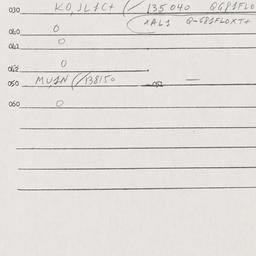 030 KO, JL1C+ (/135040 QG81FLO
XAL1 Q-G81FLOXT+
040 0
041 0
042 0
050 MU1N (/138150 051 —
060 0